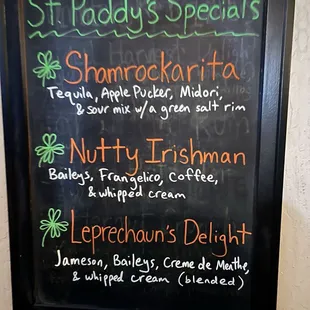 St. Paddy's Specials
Shamrockarita
Tequila, Apple Pucker, Midori,
& sour mix w/a green salt rim
Nutty Irishman
Baileys, Frangelico, Coffee,
& whipped cream
Leprechaun's Delight
Jameson, Baileys, Creme de Menthe,
& whipped cream (blended)